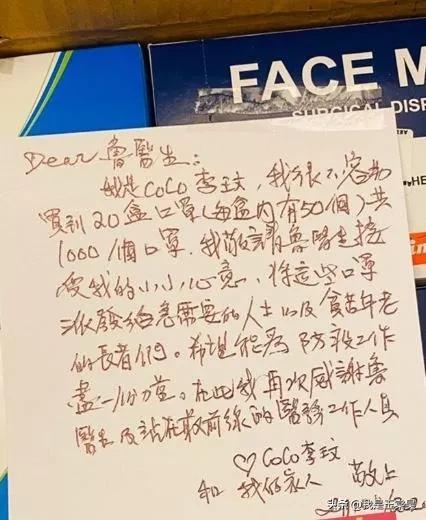 FACE M
SURGICAL DISP
HE
Dear 魯醫生:
我是CoCo李玟,我很不容易
買到20盒口罩(每盒內有50個)共
1000個口罩。我敬請魯醫生接
受我的小小心意,將這些口罩
派發給急需要的人士以及貧苦年老
的長者們。希望能為防疫工作
盡一份力量。在此我再次感謝魯
醫生及站在最前線的醫務工作人員
♡CoCo李玟
和 我的家人 敬上
头条 @我是